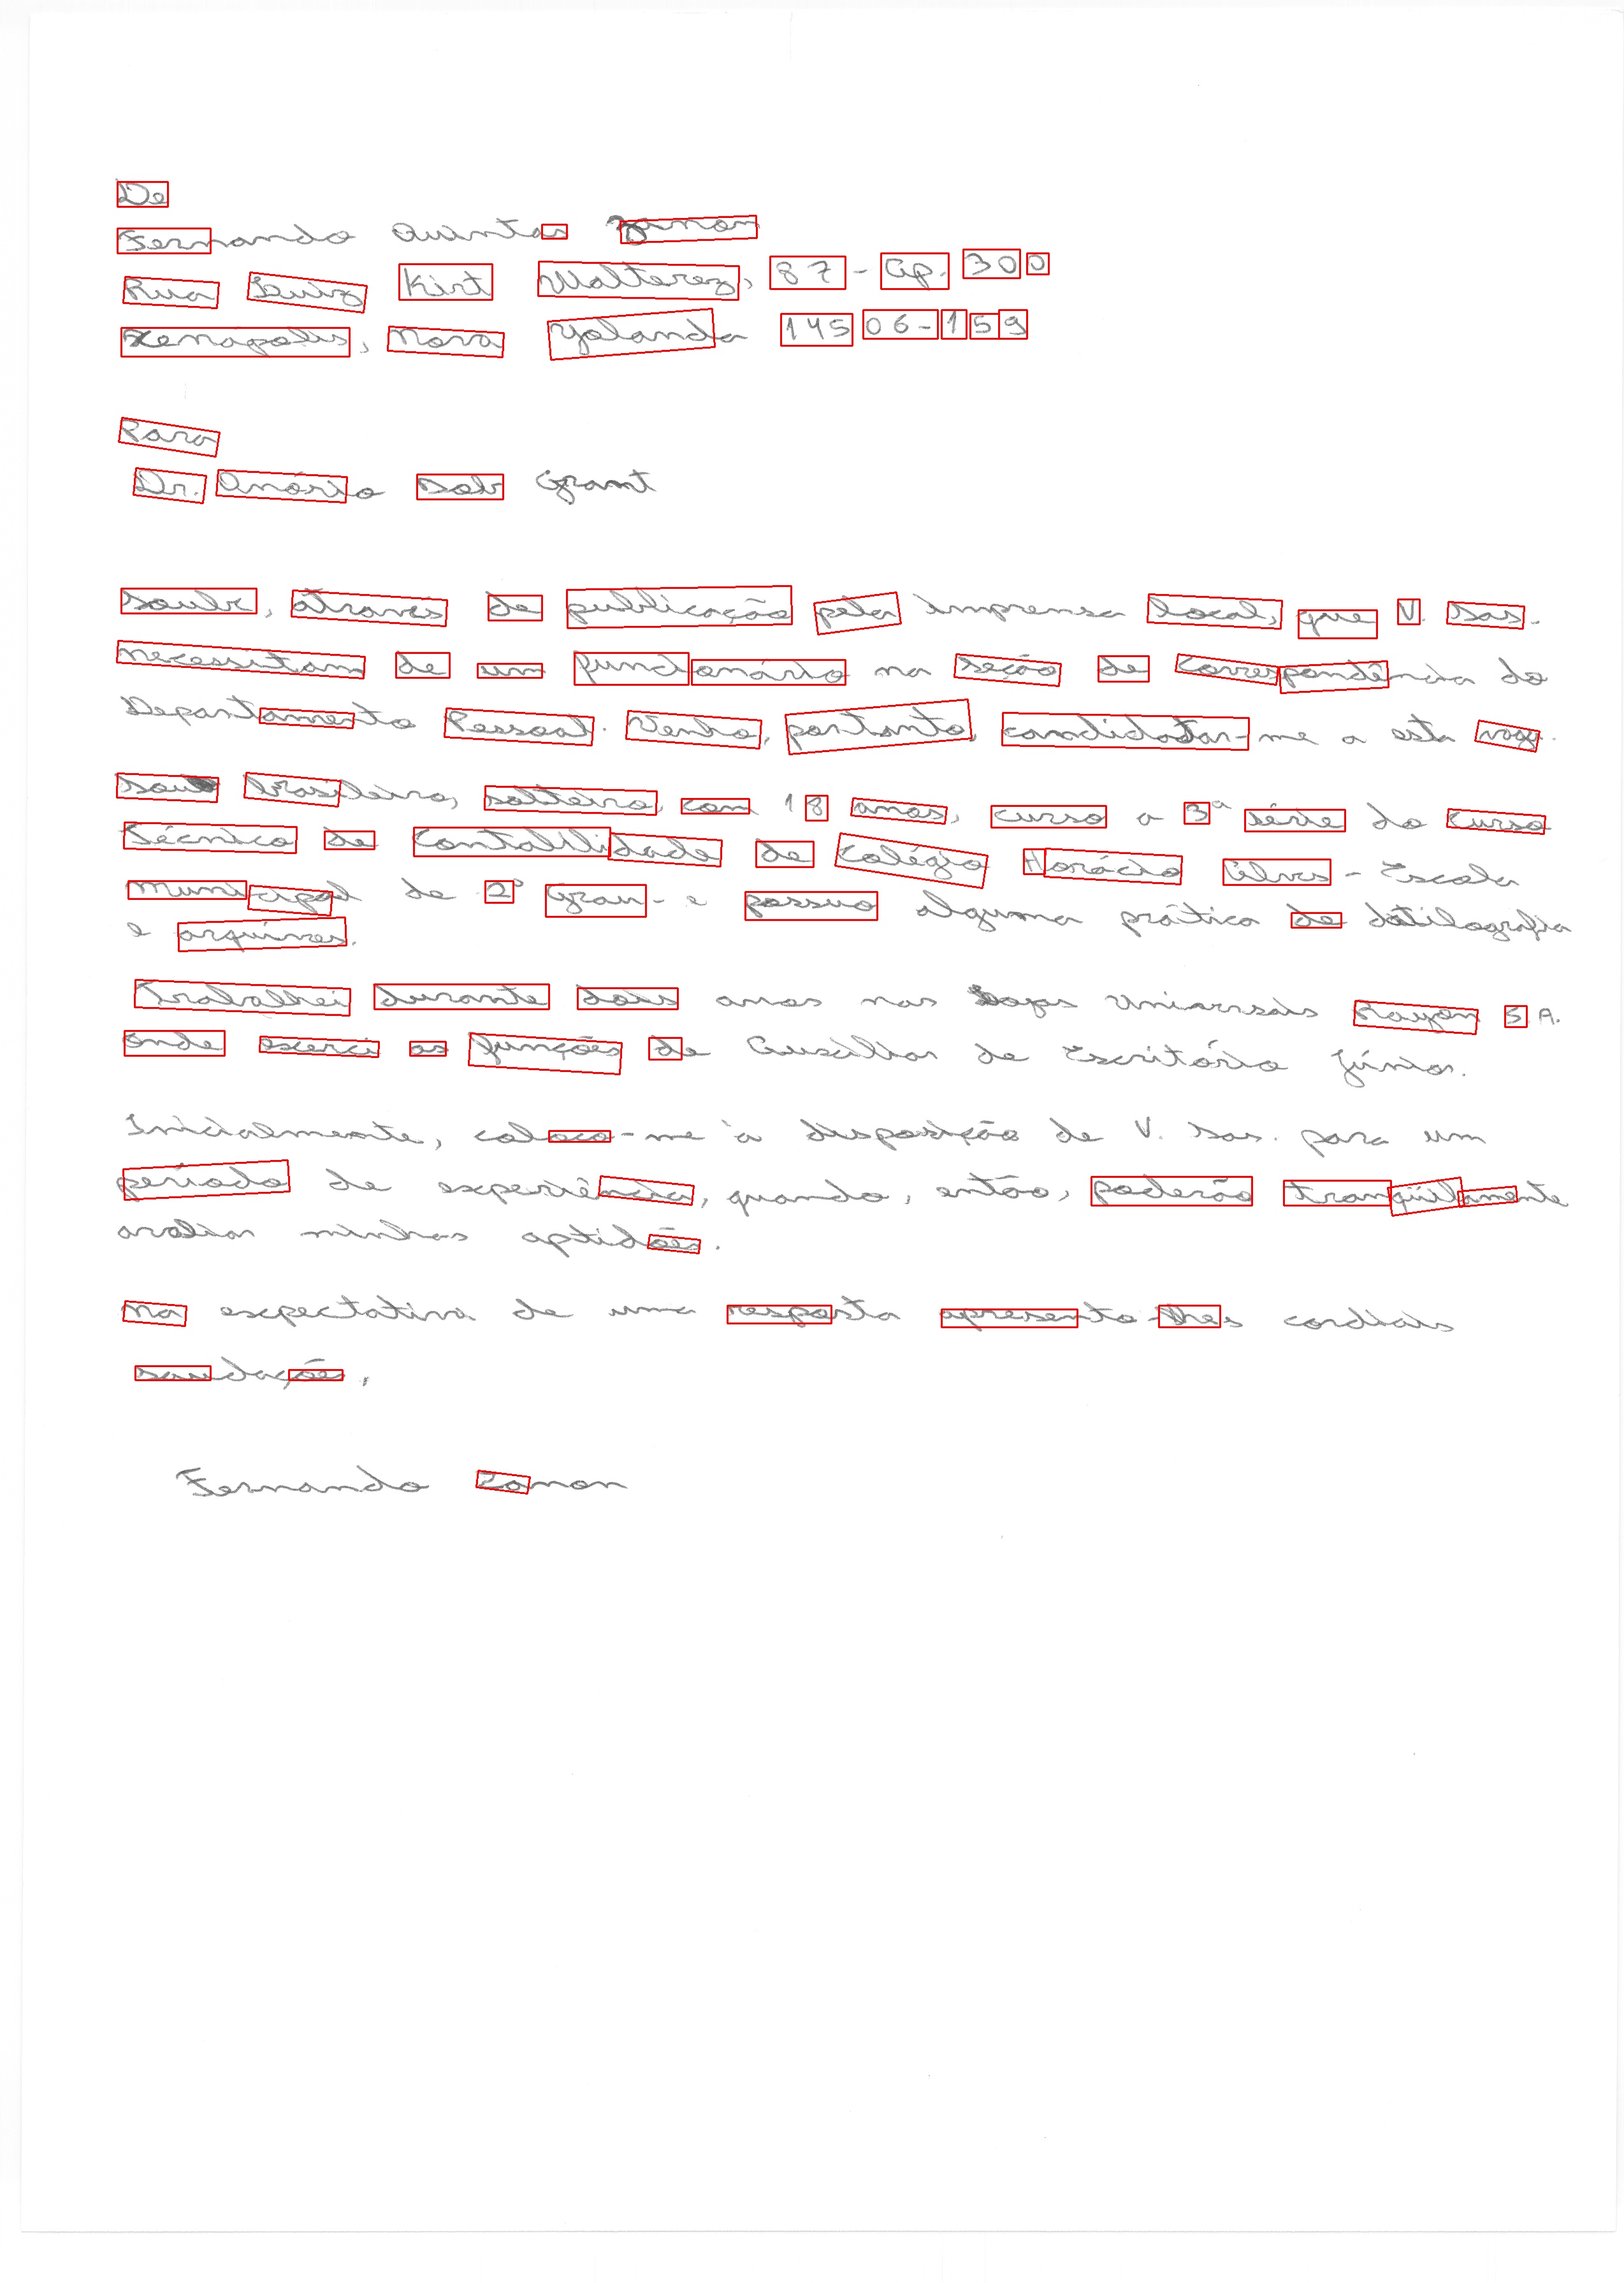 De
Fernando Quintas Zanon
Rua Luiz Kirt Walterez, 87 - Ap. 300
Xenópolis, Nova Yolanda 14506-159
Para
Dr. Amário Sab Grant
Soube, através de publicação pela imprensa local, que V. Sas.
necessitam de um funcionário na seção de Correspondência do
Departamento Pessoal. Venho, portanto, candidatar-me a esta vaga.
Sou brasileiro, solteiro, com 18 anos, curso a 3ª série do curso
Técnico de Contabilidade de Colégio Horácio Alves - Escola
Municipal de 2º Grau - e possuo alguma prática de datilografia
e arquivos.
Trabalhei durante dois anos nas Lojas Universais Rayon S A.
onde exerci as funções de Auxiliar de Escritório Júnior.
Inicialmente, coloco-me à disposição de V. Sas. para um
período de experiência, quando, então, poderão tranqüilamente
avaliar minhas aptidões.
Na expectativa de uma resposta apresento-lhes cordiais
saudações,
Fernando Zanon